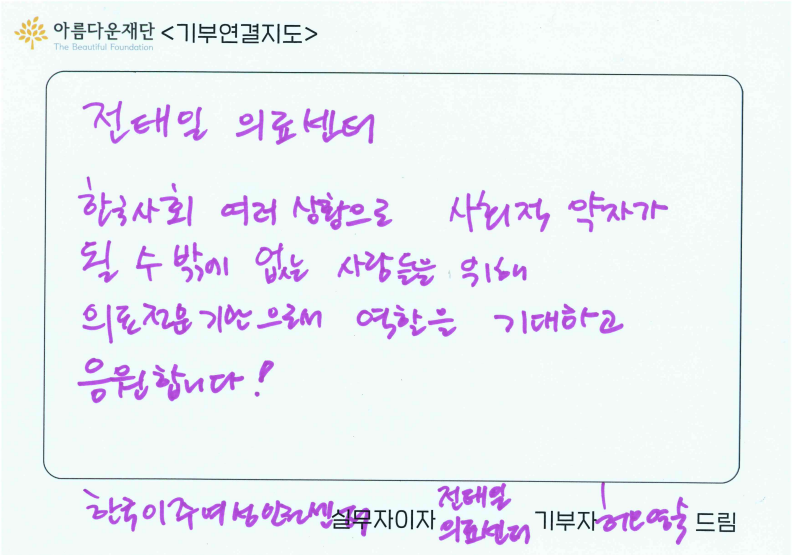 아름다운재단 <기부연결지도>
The Beautiful Foundation
전태일 의료센터
한국사회 여러 상황으로 사회적 약자가
될 수 밖에 없는 사람들을 위해
의료전문기관으로서 역할을 기대하고
응원합니다!
한국이주여성인권센터 실무자이자 전태일 의료센터 기부자 허오영숙 드림